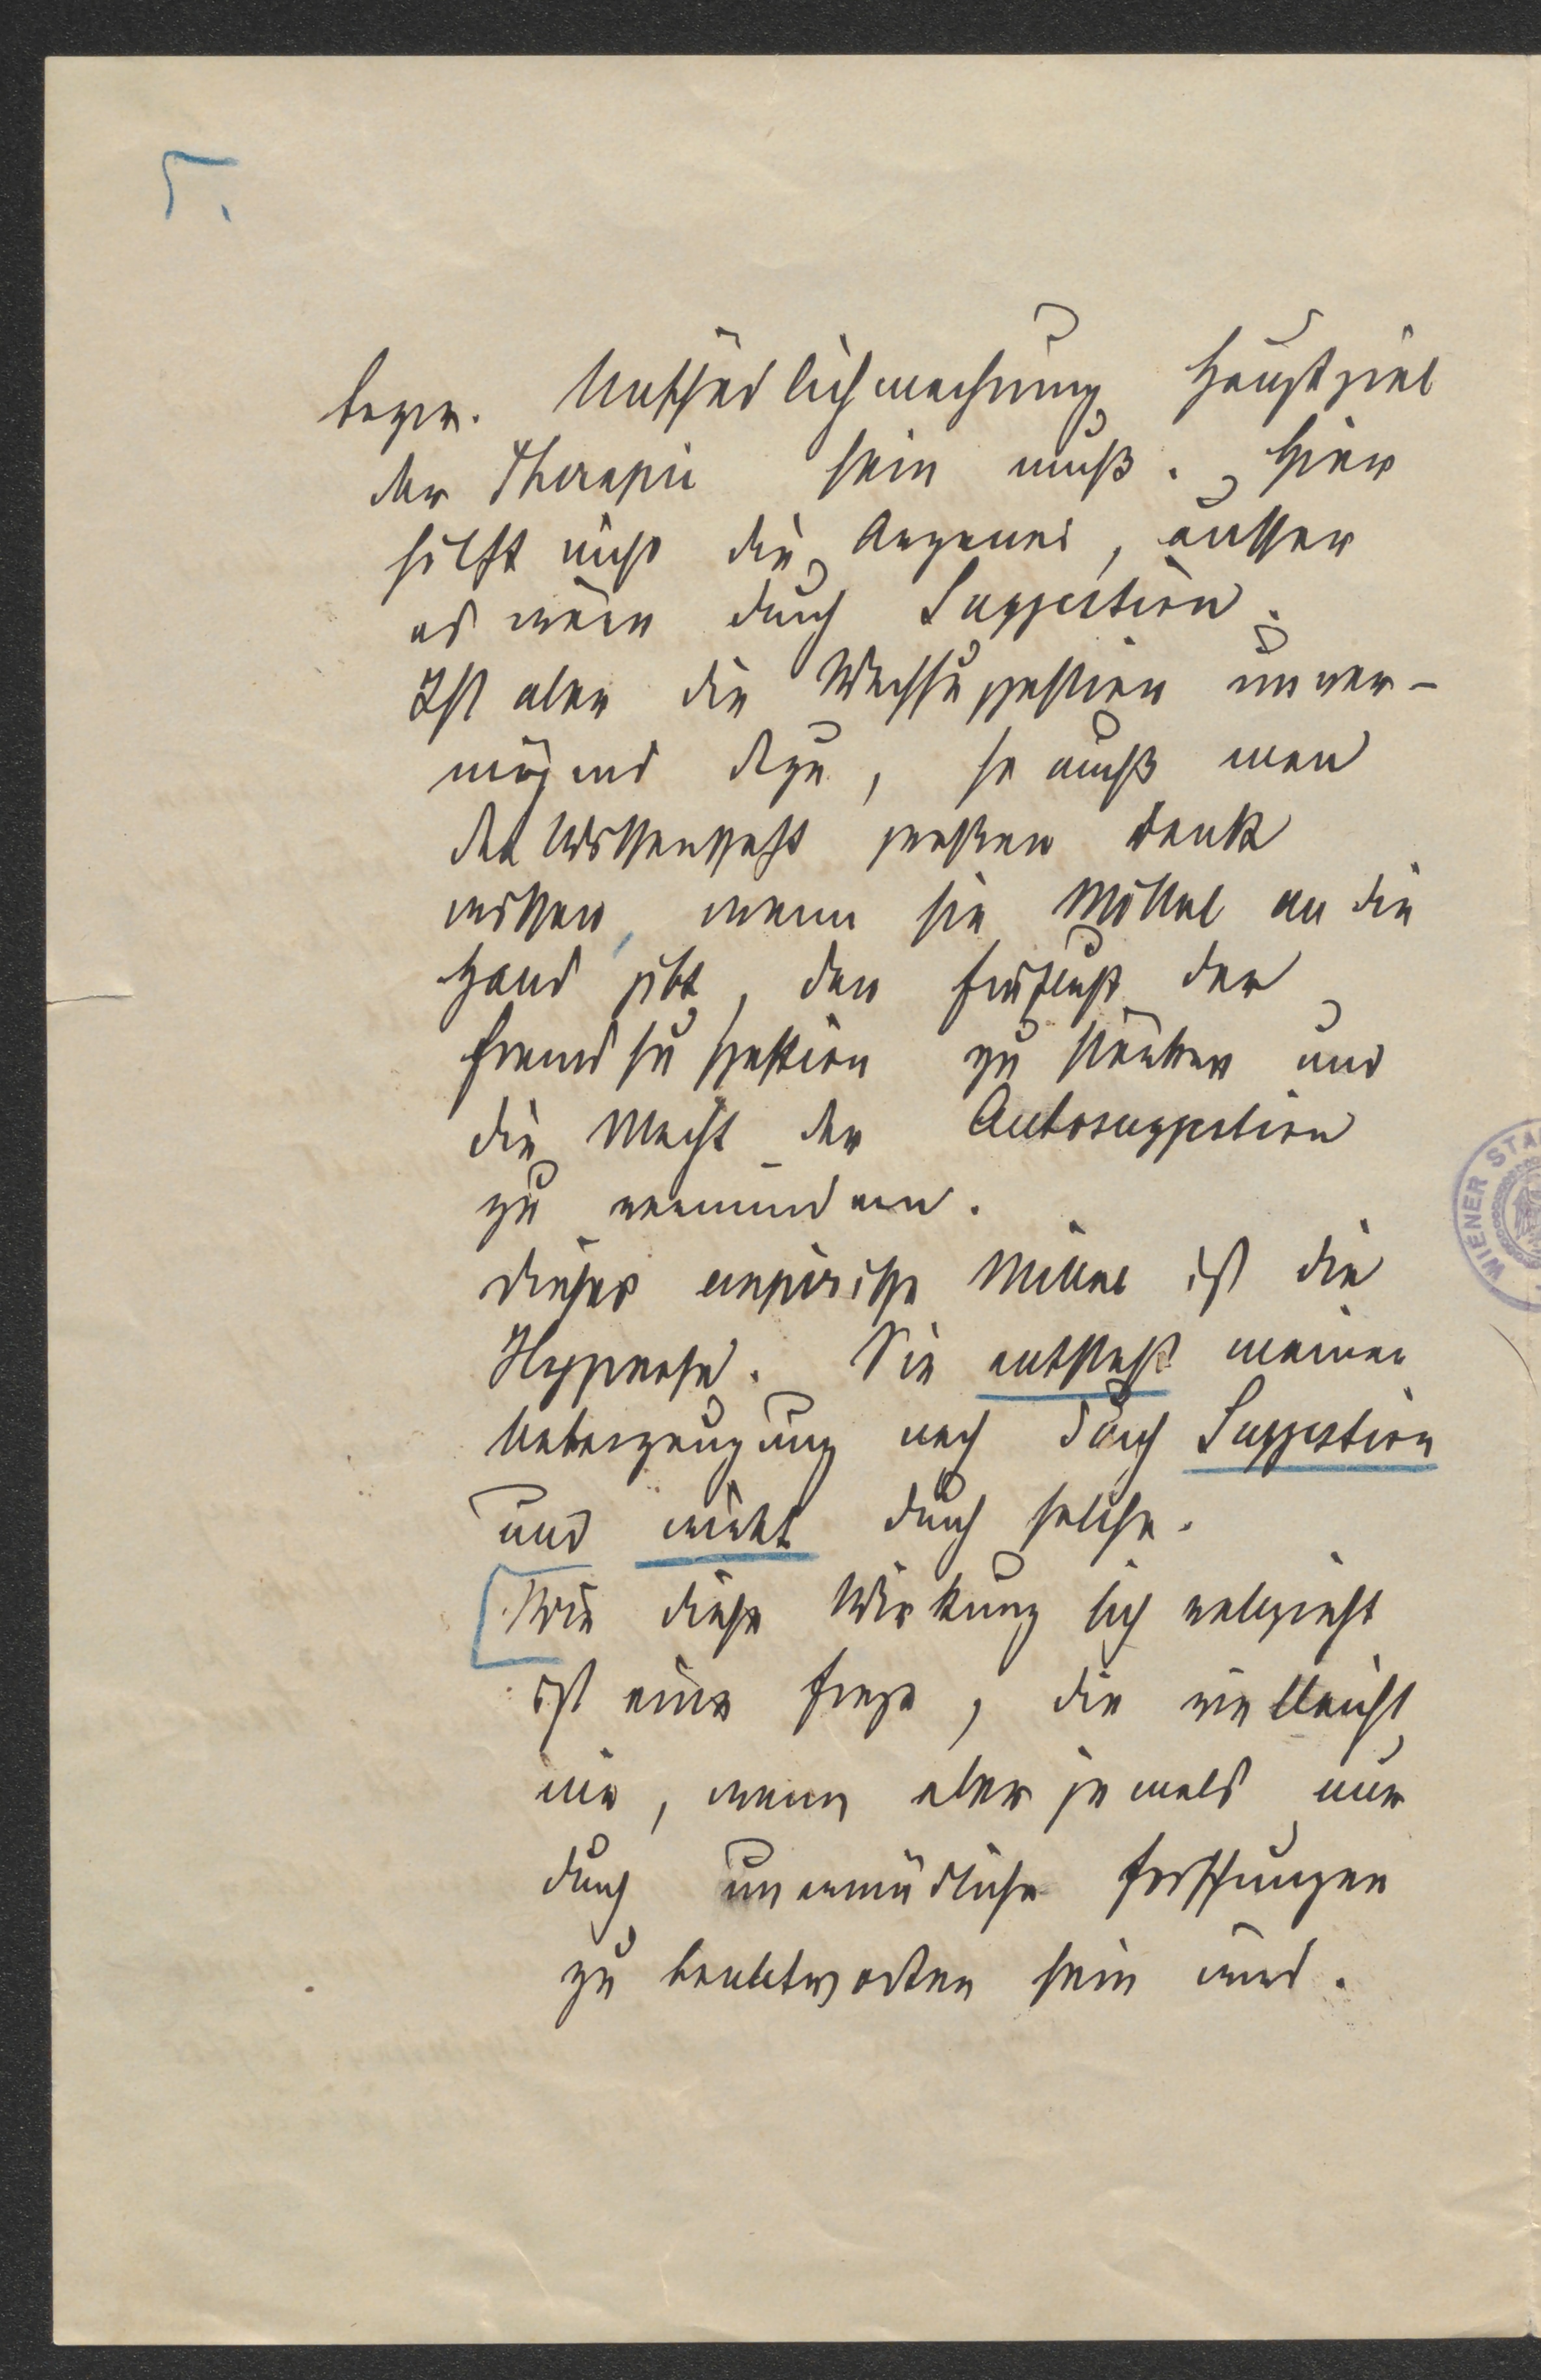 5.
bezw. Unschädlichmachung Hauptziel
der Therapie sein muß. Hier
hilft nicht die Arzenei, ausser
es wäre durch Suggestion.
Ist aber die Wachsuggestion unver-
mögend dazu, so muß man
der Wissenschaft großen Dank
wissen, wenn sie Mittel an die
Hand gibt, den Einfluß der
Fremdsuggestion zu stärken und
die Macht der Autosuggestion
zu vermindern.
Dieses empirische Mittel ist die
Hypnose. Sie entsteht meiner
Ueberzeugung nach durch Suggestion
und wirkt durch solche.
Wie diese Wirkung sich vollzieht
ist eine Frage, die vielleicht
nie, wenn aber jemals nur
durch unermüdliche Forschungen
zu beantworten sein wird.
WIENER STA